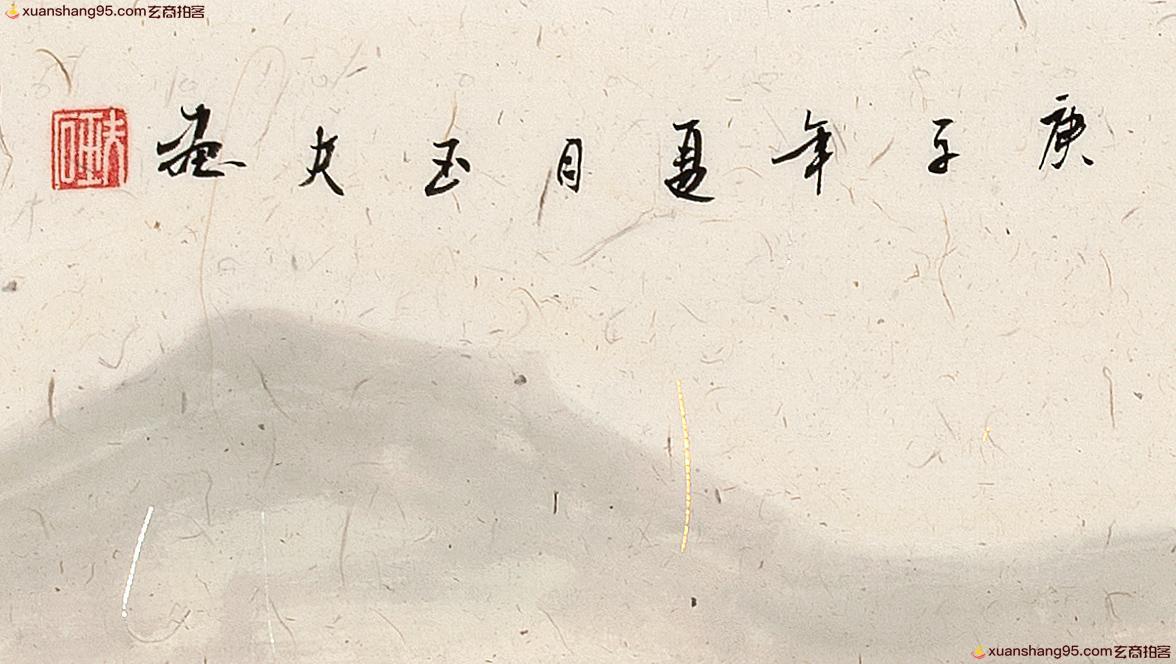 xuanshang95.com玄商拍客
庚子年夏月玉夫画
xuanshang95.com玄商拍客